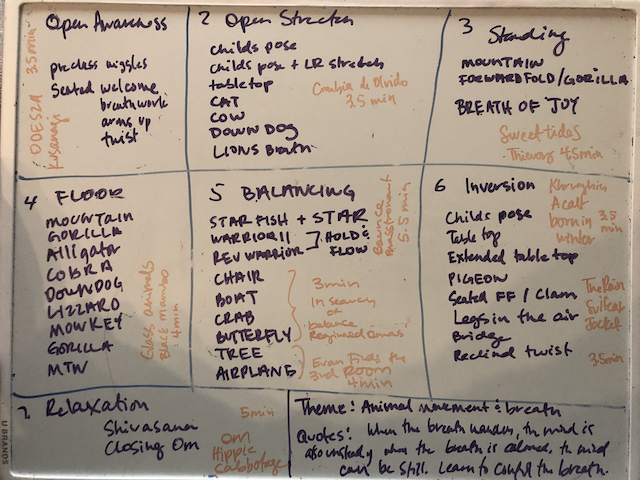 Open Awareness
preclass wiggles
Seated welcome
breathwork
arms up
twist
ODESZA
3.5min
2 Open Stretch
childs pose
childs pose + LR stretch
tabletop
CAT
COW
DOWNDOG
LIONS Breath
Cumbia de Olvido
3.5 min
3 Standing
MOUNTAIN
FORWARDFOLD/GORILLA
BREATH OF JOY
Sweet tides
Thievery 4.5min
4 FLOOR
MOUNTAIN
GORILLA
Alligator
COBRA
DOWNDOG
LIZZARD
MONKEY
GORILLA
MTN
Glass animals
Black mambo
4min
5 BALANCING
STARFISH + STAR
WARRIOR II
REV WARRIOR
HOLD &
FLOW
CHAIR
BOAT
CRAB
BUTTERFLY
TREE
AIRPLANE
Bounce
5.5 min
3min
In search
of
balance
Evan Finds the
3rd Room
4min
6 Inversion
Childs pose
Table top
Extended table top
PIGEON
Seated FF / Clam
Legs in the air
Bridge
Reclined twist
Khruangbin
A calf
born in
winter
3.5
min
The Rain
Suitcase
Jacket
3.5min
7. Relaxation
Shivasana
Closing Om
5min
Om
Hippie
Theme: Animal movement & breath
Quotes: When the breath wanders, the mind is
also unsteady when the breath is calmed, the mind
can be still. Learn to the breath.
U BRANDS